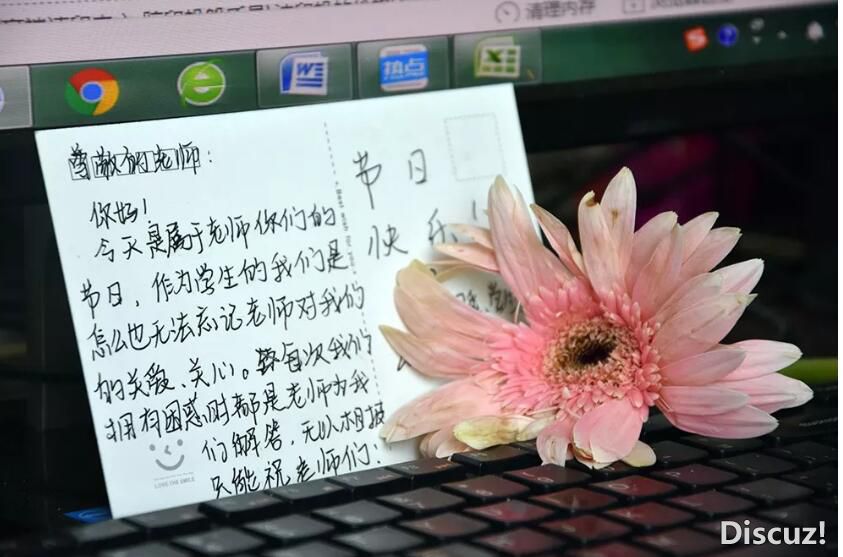 清理内存
W
热点
X
尊敬的老师：
你好！
今天是属于老师你们的
节日，作为学生的我们是
怎么也无法忘记老师对我们
的关爱、关心。每次我们
拥有困惑时都是老师为我
们解答，无以相报
只能祝老师们：
节日
快乐！
Best wish for
LOVE THE SMILE
Discuz!